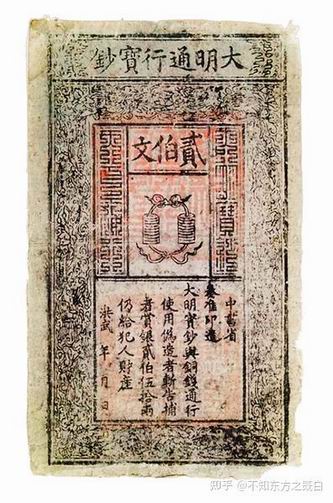 大明通行寶鈔
貳伯文
中書省
奏准印造
大明寶鈔與銅錢通行
使用偽造者斬告捕
者賞銀貳伯伍拾兩
仍給犯人財產
洪武 年 月 日
知乎 @不知东方之既白